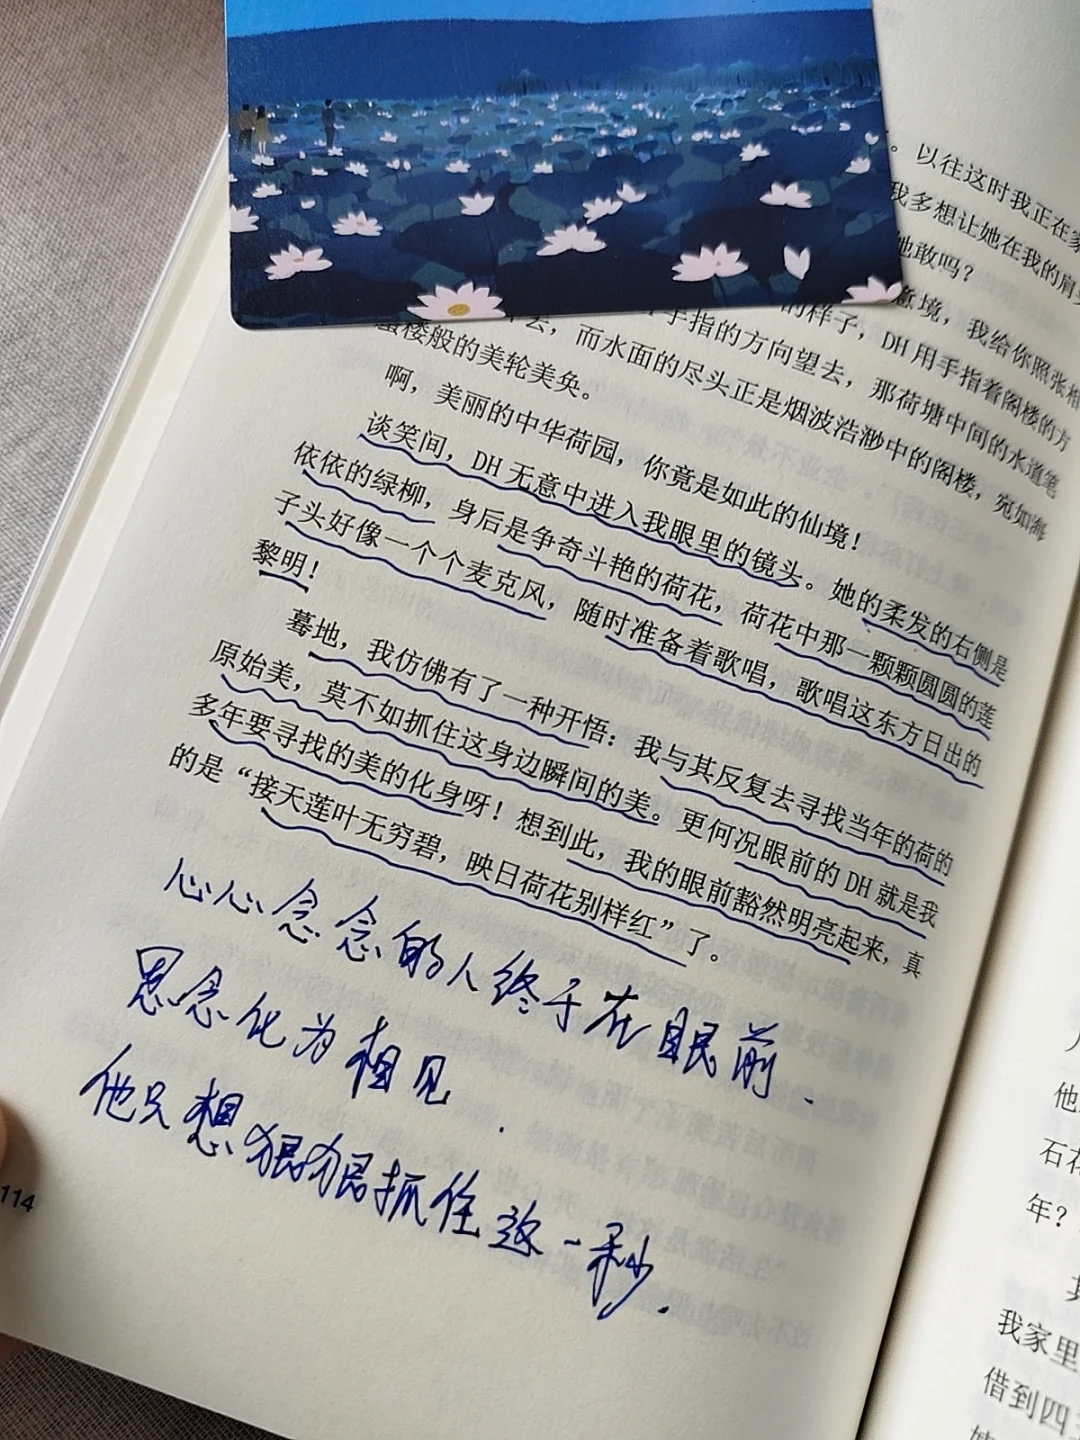 。以往这时我正在家
我多想让她在我的肩
她敢吗?
意境,我给你照张相
的样子,DH用手指着阁楼的方
手指的方向望去,那荷塘中间的水道笔
去,而水面的尽头正是烟波浩渺中的阁楼,宛如海
蜃楼般的美轮美奂。
啊,美丽的中华荷园,你竟是如此的仙境!
谈笑间,DH无意中进入我眼里的镜头。她的柔发的右侧是
依依的绿柳,身后是争奇斗艳的荷花,荷花中那一颗颗圆圆的莲
子头好像一个个麦克风,随时准备着歌唱,歌唱这东方日出的
黎明!
蓦地,我仿佛有了一种开悟:我与其反复去寻找当年的荷的
原始美,莫不如抓住这身边瞬间的美。更何况眼前的DH就是我
多年要寻找的美的化身呀!想到此,我的眼前豁然明亮起来,真
的是“接天莲叶无穷碧,映日荷花别样红”了。
心心念念的人终于在眼前.
思念化为相见.
他只想狠狠抓住这一秒.
114
他
石花
年?
我家里
借到四